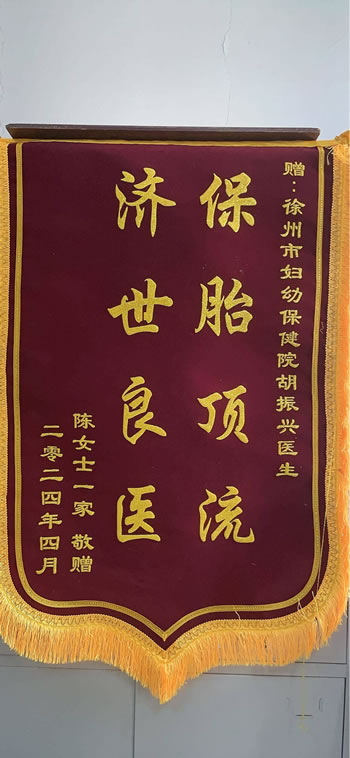 赠：徐州市妇幼保健院胡振兴医生
保胎顶流
济世良医
陈女士一家 敬赠
二零二四年四月